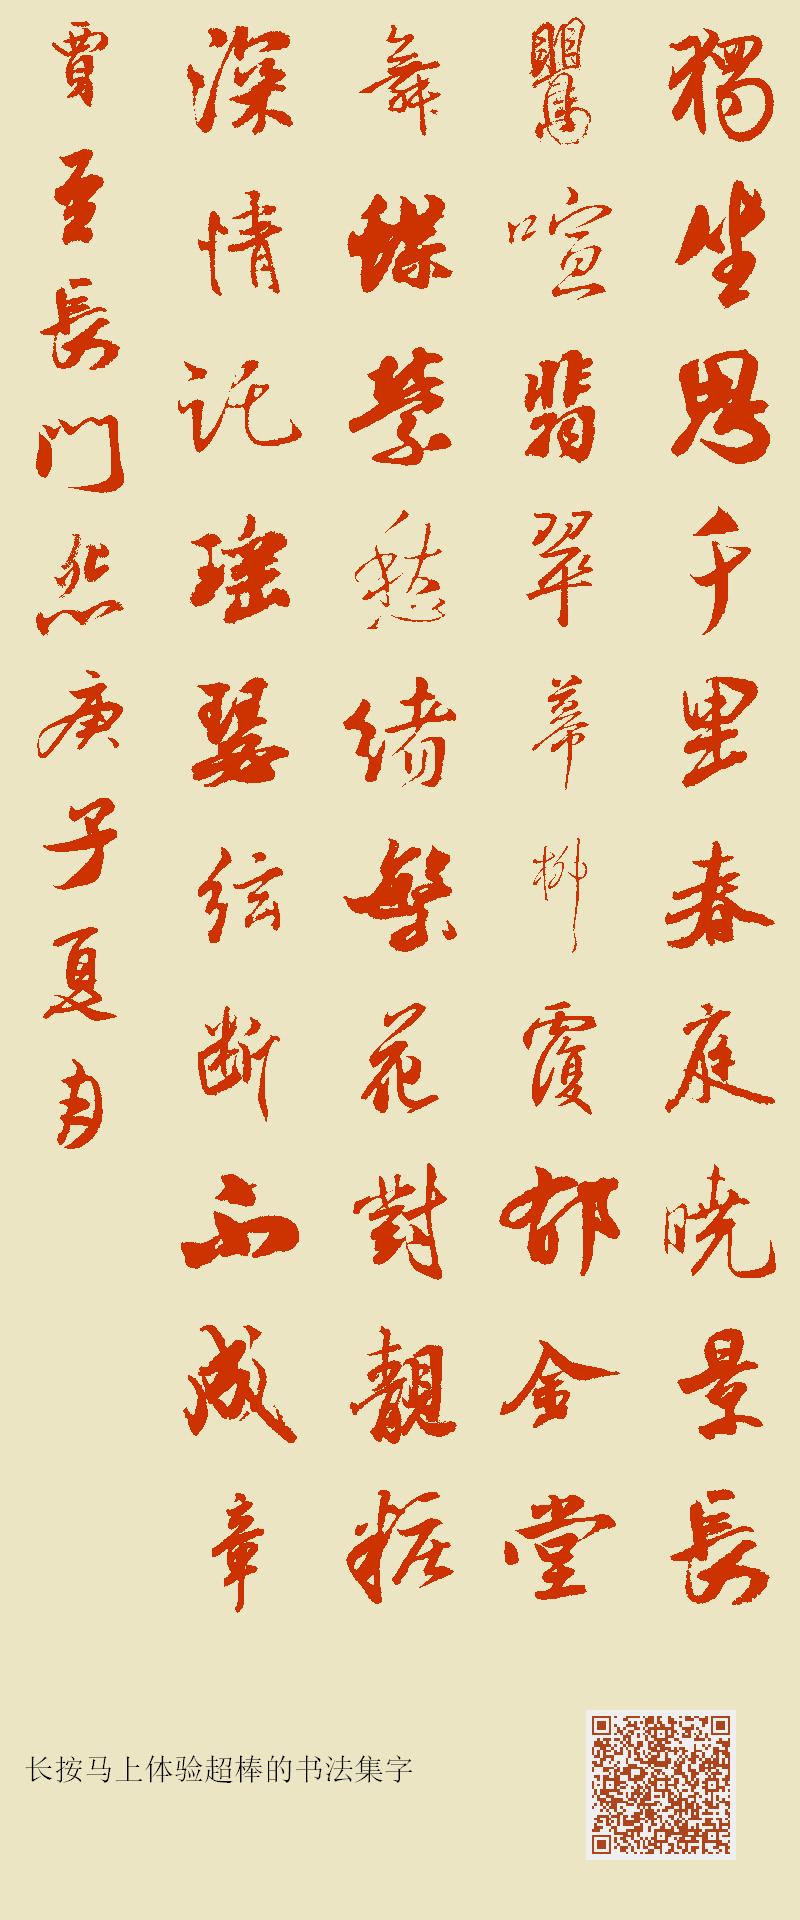 獨坐思千里春庭曉景長
鸎喧翡翠幕柳覆郁金堂
舞蝶縈愁緒繁花對靚粧
深情託瑤瑟絃断不成章
賈至長門怨庚子夏
长按马上体验超棒的书法集字